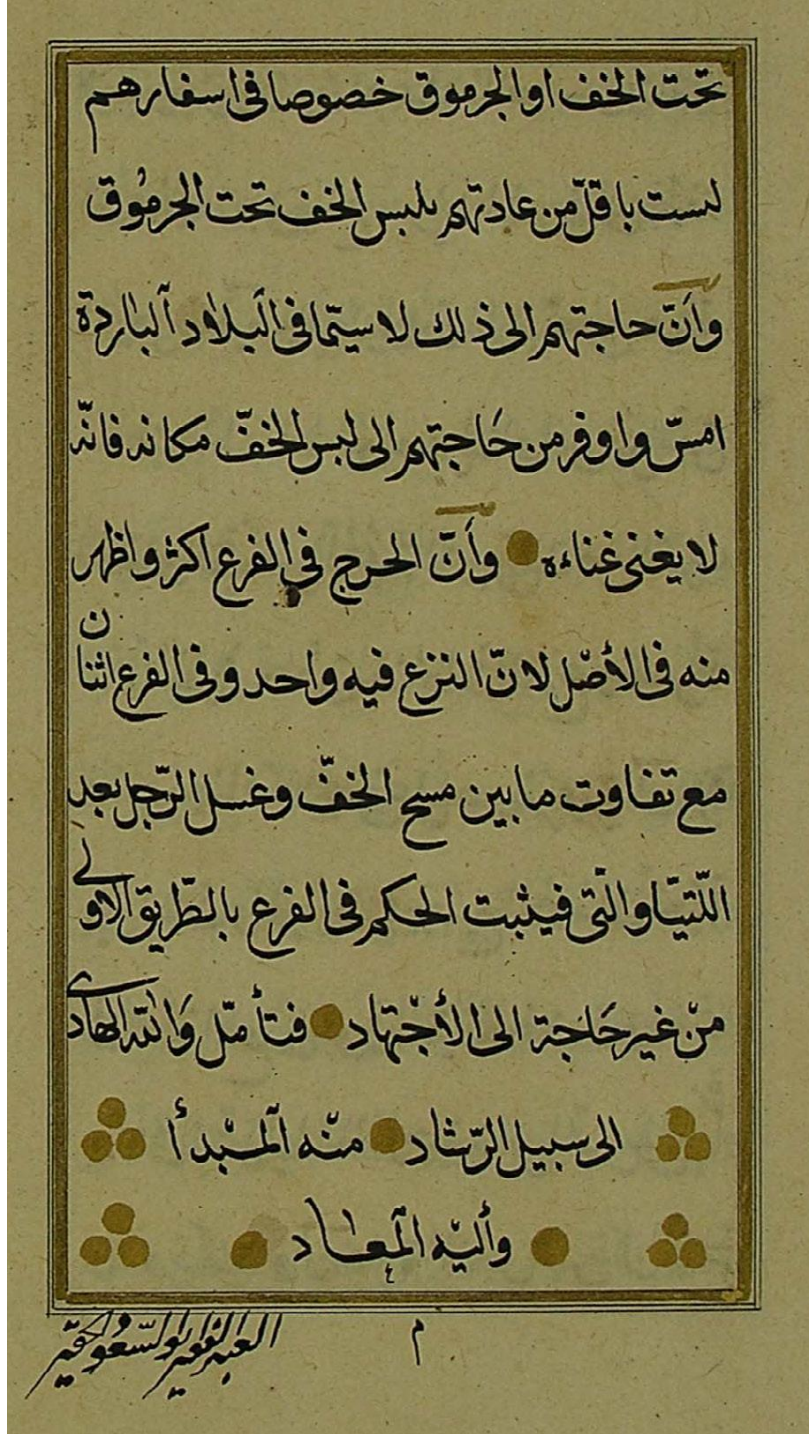 تحت الخف او الجرموق خصوصا فى اسفارهم
ليست باقلّ من عادتهم بلبس الخف تحت الجرمُوق
وأنّ حاجتهم الى ذلك لا سيّما فى البلاد الباردة
امسّ واوفر من حَاجتهم الى لبس الخفّ مكانه فانّه
لا يغنى غناءه وأنّ الحرج فى الفرع اكثر واظهر
منه فى الأصْل لانّ النزع فيه واحد وفى الفرع اثنان
مع تفاوت ما بين مسح الخفّ وغسل الرّجل بعد
اللّتيّا والّتى فيثبت الحكم فى الفرع بالطّريق الاولى
منْ غير حَاجة الى الأجْتهاد فتأمّل وَالله الهادى
الى سبيل الرّشاد منْه الْمَبْدأ
وأليْه الْمعاد
م
العبد الفقير ابو السّعُود الحقير